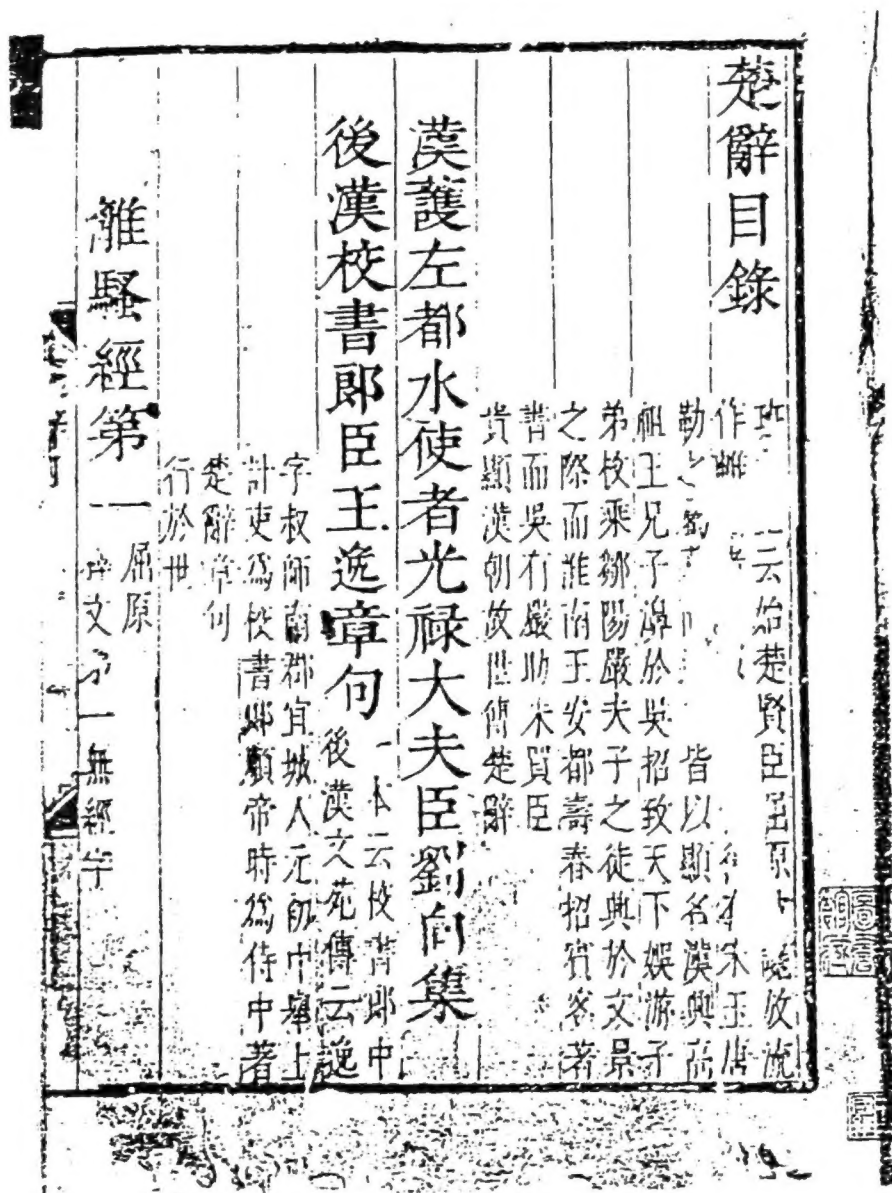 楚辭目錄
云始楚賢臣屈原放流
作離宋玉唐
勒之皆以顯名漢興高
祖王兄子濞於吳招致天下娛游子
弟枚乘鄒陽嚴夫子之徒興於文景
之際而淮南王安都壽春招賓客著
書而吳有嚴助朱買臣
貴顯漢朝故世傳楚辭
漢護左都水使者光祿大夫臣劉向集
後漢校書郎臣王逸章句
一本云校書郎中
後漢文苑傳云逸
字叔師南郡宜城人元初中舉上
計吏爲校書郎順帝時爲侍中著
楚辭章句
行於世
離騷經第一
屈原
釋文第一無經字